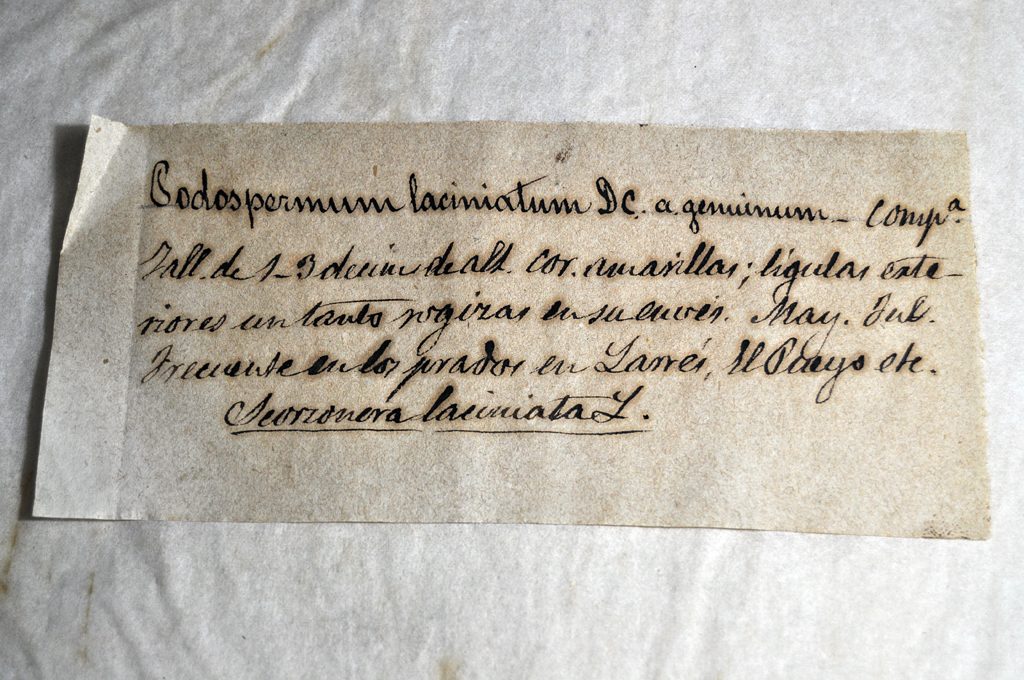 Podospermum laciniatum DC. a. genuinum_ Compª
Tall. de 1-3 decim de alt. cor. amarillas; lígulas exte-
riores un tanto rogizas en su envés. May. Jul.
Frecuente en los prados en Larrés, El Pueyo etc.
Scorzonera laciniata L.